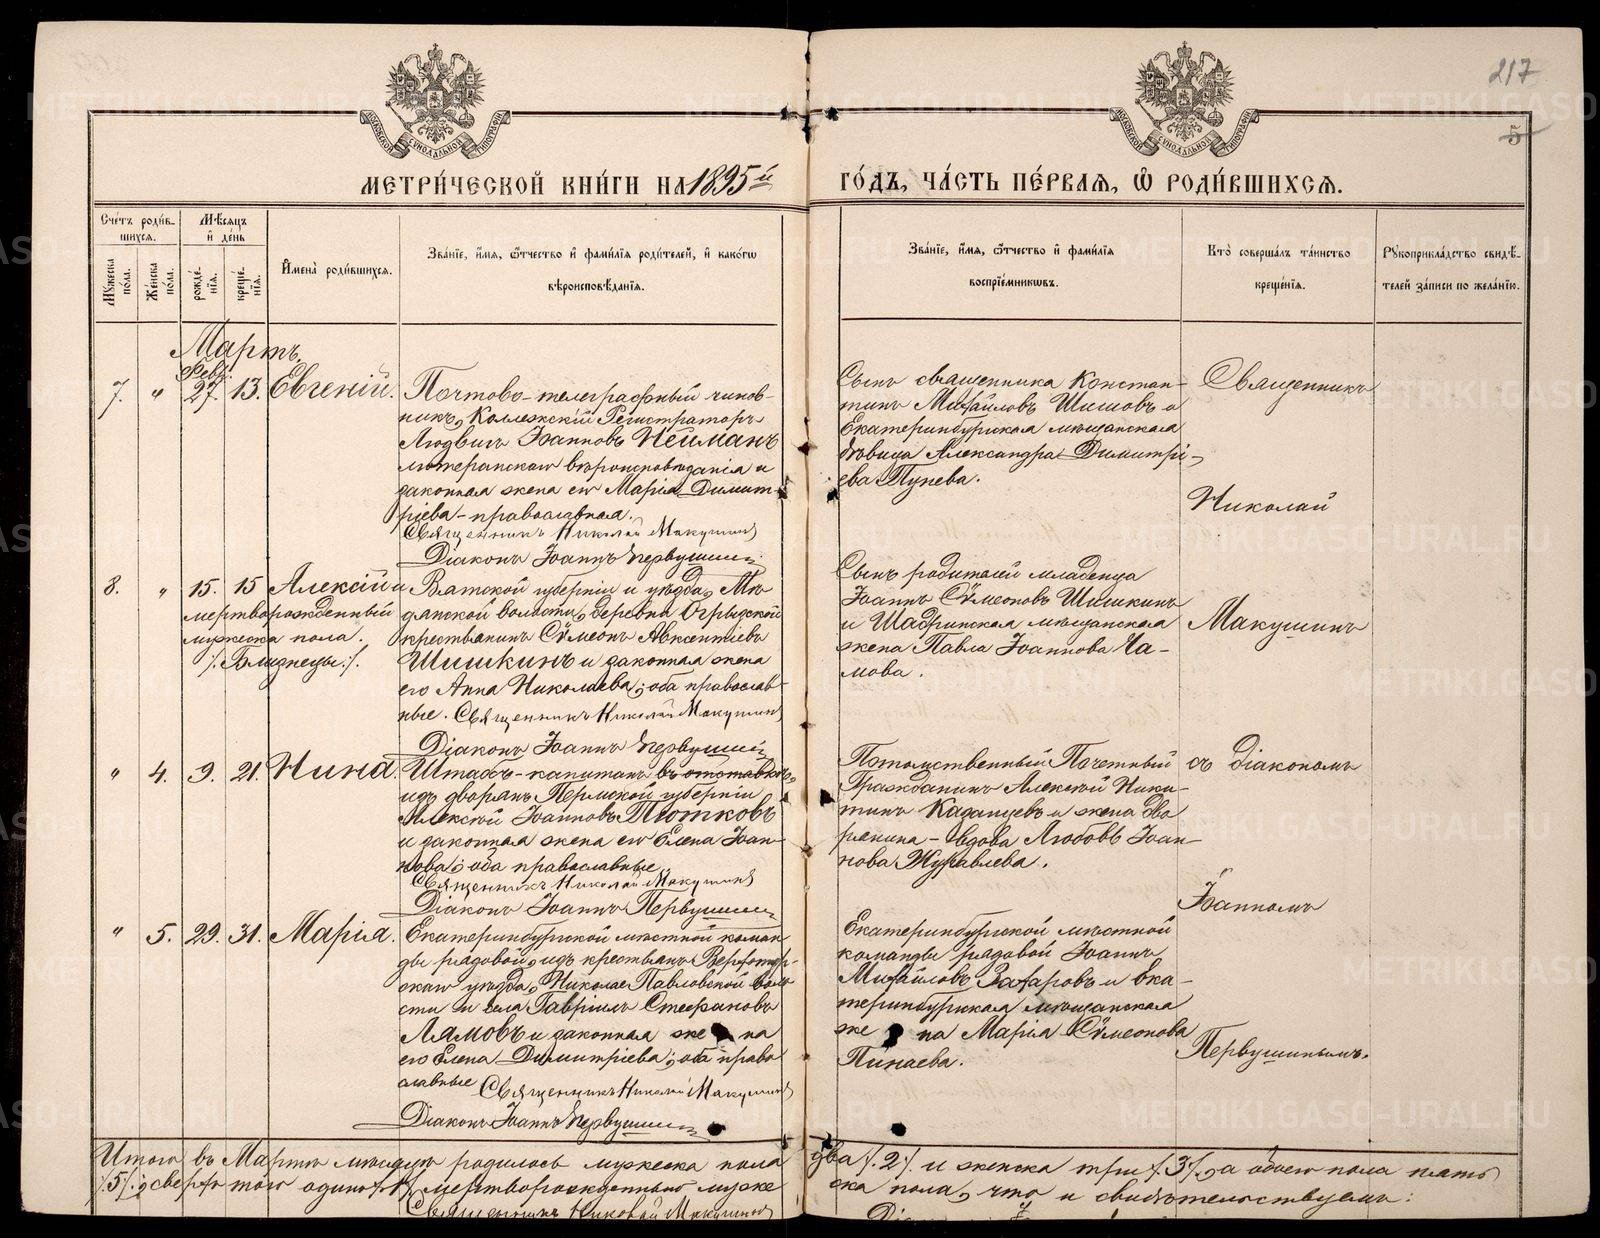 217
5
МОСКОВСКОЙ СѴНОДАЛЬНОЙ ТИПОГРАФІИ
МОСКОВСКОЙ СѴНОДАЛЬНОЙ ТИПОГРАФІИ
МЕТРИ́ЧЕСКОЙ КНИ́ГИ НА 1895й
ГО́ДЪ, ЧА́СТЬ ПЕ́РВАЯ, Ѽ РОДИ́ВШИХСЯ.
Сче́тъ роди́в-
шихся.
Мѣсяцъ
и҆ де́нь
Му́жеска
по́ла.
Же́нска
по́ла.
рожде́-
нїя.
креще́-
нїя.
И҆мена̀ роди́вшихся.
Зва́нїе, и҆́мя, ѻ҆́тчество и҆ фами́лїя роди́телей, и҆ како́гѡ
вѣроисповѣ́данїя.
Зва́нїе, и҆́мя, ѻ҆́тчество и҆ фами́лїя
воспрїе́мникѡвъ.
Кто̀ соверша́лъ та́инство
креще́нїя.
Рꙋкоприкла́дство свидѣ́-
телей за́писи по жела́нїю.
Мартъ.
Февр.
7. " 27. 13. Евгеній.
Почтово-телеграфный чинов-
никъ, Коллежскій Регистраторъ
Людвигъ Іоанновъ Нейманъ
лютеранскаго вѣроисповѣданія и
законная жена его Марія Димит-
ріева - православная.
Священникъ Николай Макушинъ
Діаконъ Іоаннъ Первушинъ
Сынъ священника Констан-
тинъ Михайловъ Шишовъ и
Екатеринбургская мѣщанская
дѣвица Александра Димитрі-
ева Пупева.
Священникъ
Николай
8. " 15. 15 Алексій и
мертворожденный
мужеска пола.
/. Близнецы ./.
Вятской губерніи и уѣзда, Мѣ
дянской волости, деревни Огрызской
крестьянинъ Сѵмеонъ Авксентіевъ
Шишкинъ и законная жена
его Анна Николаева; оба православ-
ные. Священникъ Николай Макушинъ
Діаконъ Іоаннъ Первушинъ
Сынъ родителей младенца
Іоаннъ Сѵмеоновъ Шишкинъ
и Шадринская мѣщанская
жена Павла Іоаннова Ча-
мова.
Макушинъ
" 4. 9. 21. Нина.
Штабсъ-капитанъ въ отставкѣ
изъ дворянъ Пермской губерніи
Алексѣй Іоанновъ Тютковъ
и законная жена его Елена Іоан-
нова; оба православные.
Священникъ Николай Макушинъ
Діаконъ Іоаннъ Первушинъ
Потомственный Почетный
Гражданинъ Алексѣй Ники-
тинъ Казанцевъ и жена дво
рянина - вдова Любовь Іоан-
нова Журавлева.
съ Діакономъ
Іоанномъ
" 5. 29. 31. Марія.
Екатеринбургской мѣстной коман
ды рядовой, изъ крестьянъ Верхотур-
скаго уѣзда, Николае Павловской воло
сти и села Гавріилъ Стефановъ
Лямовъ и законная же на
его Елена Димитріева; оба право
славные Священникъ Николай Макушинъ
Діаконъ Іоаннъ Первушинъ
Екатеринбургской мѣстной
команды рядовой Іоаннъ
Михайловъ Захаровъ и ека-
теринбургская мѣщанская
же на Марія Сѵмеонова
Пинаева.
Первушинымъ.
Итого въ Мартѣ мѣсяцѣ родилось мужеска пола два /. 2 ./ и женска три /. 3 ./, а обоего пола пять
/. 5 ./; сверхъ того одинъ /. 1 ./ мертворожденный муже ска пола, что и свидѣтельствуемъ:
Священникъ Николай Макушинъ